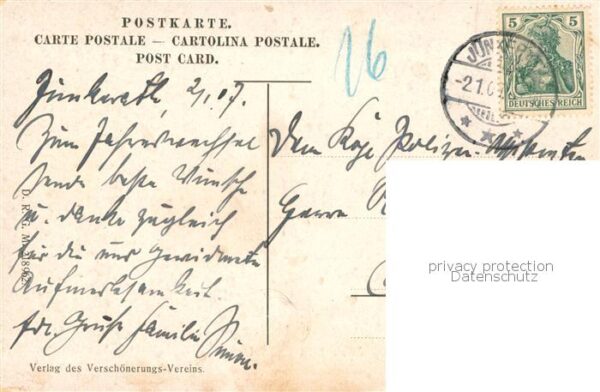 POSTKARTE.
CARTE POSTALE — CARTOLINA POSTALE.
POST CARD.
16
5 5
DEUTSCHES REICH
JÜNKERATH
-2.1.0
Jünkerath, 2/1.07.
Zum Jahreswechsel
sende beste Wünsche
u. danke zugleich
für die uns gewidmete
Aufmerksamkeit.
frdl. Grüße Familie
Dem Kgl. Polizei-
Herrn
D. R. G. M.
privacy protection
Datenschutz
Verlag des Verschönerungs-Vereins.